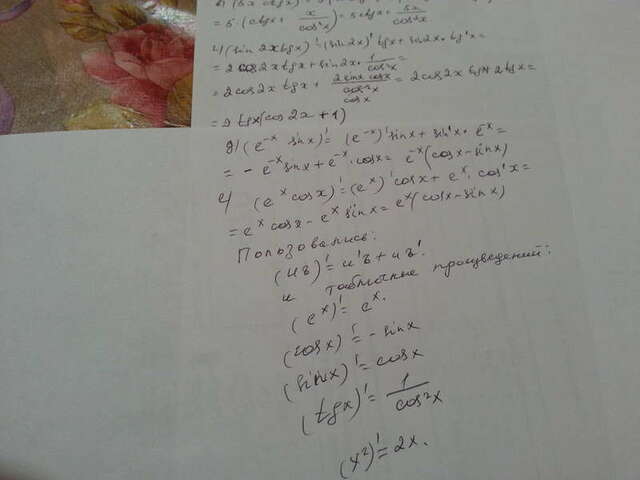 = 5 (ctgx + x/cos²x) = 5ctgx + 5x/cos²x
(sin 2x tgx)' = (sin2x)' tgx + sin2x · tg'x =
= 2 cos2x tgx + sin2x · 1/cos²x =
= 2cos2x tgx + 2sinx cosx/cos²x = 2cos2x tgx 2tgx =
cosx
= 2 tgx(cos2x + 1)
д) (e⁻ˣ sinx)' = (e⁻ˣ)' sinx + sin'x · e⁻ˣ =
= - e⁻ˣ sinx + e⁻ˣ · cosx = e⁻ˣ(cosx - sinx)
е) (eˣ cosx)' = (eˣ)' cosx + eˣ · cos'x =
= eˣ cosx - eˣ sinx = eˣ(cosx - sinx)
Пользовались:
(uv)' = u'v + uv'
и табличные произведений:
(eˣ)' = eˣ.
(cosx)' = - sinx
(sinx)' = cosx
(tgx)' = 1/cos²x
(x²)' = 2x.